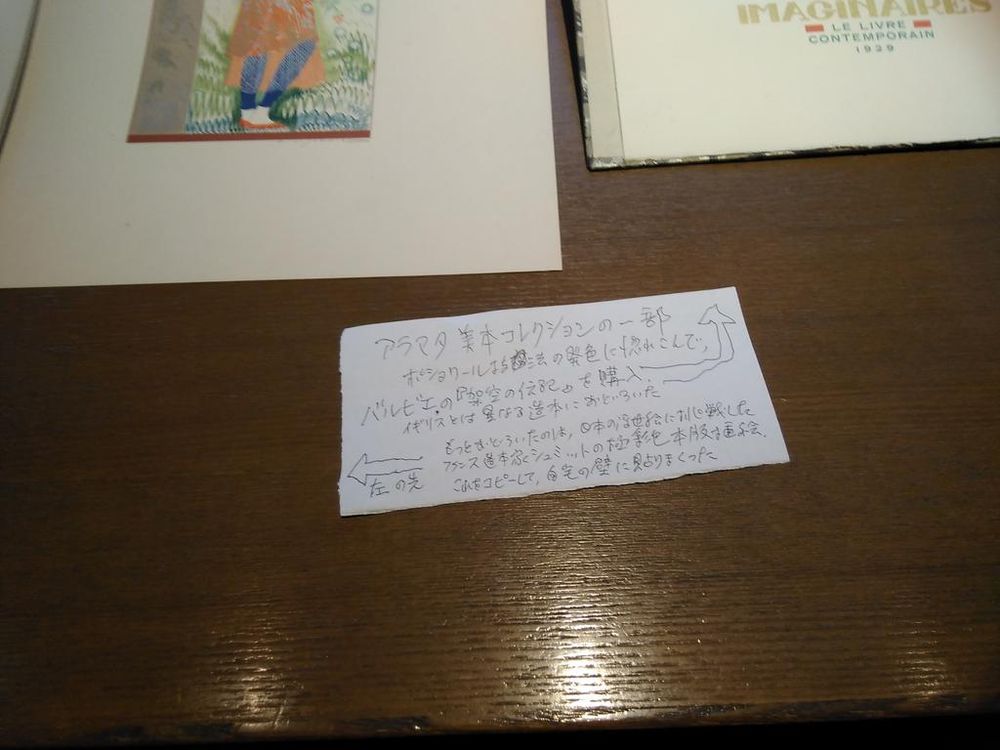 IMAGINAIRES
LE LIVRE
CONTEMPORAIN
1929
アラマタ美本コレクションの一部
ポショワールなる技法の発色に惚れこんで、
バルビエの『架空の伝記』を購入.
イギリスとは異なる造本におどろいた
もっとおどろいたのは、日本の浮世絵に挑戦した
フランス造本家シュミットの極彩色木版挿画絵.
これをコピーして、自宅の壁に貼りまくった
左の先